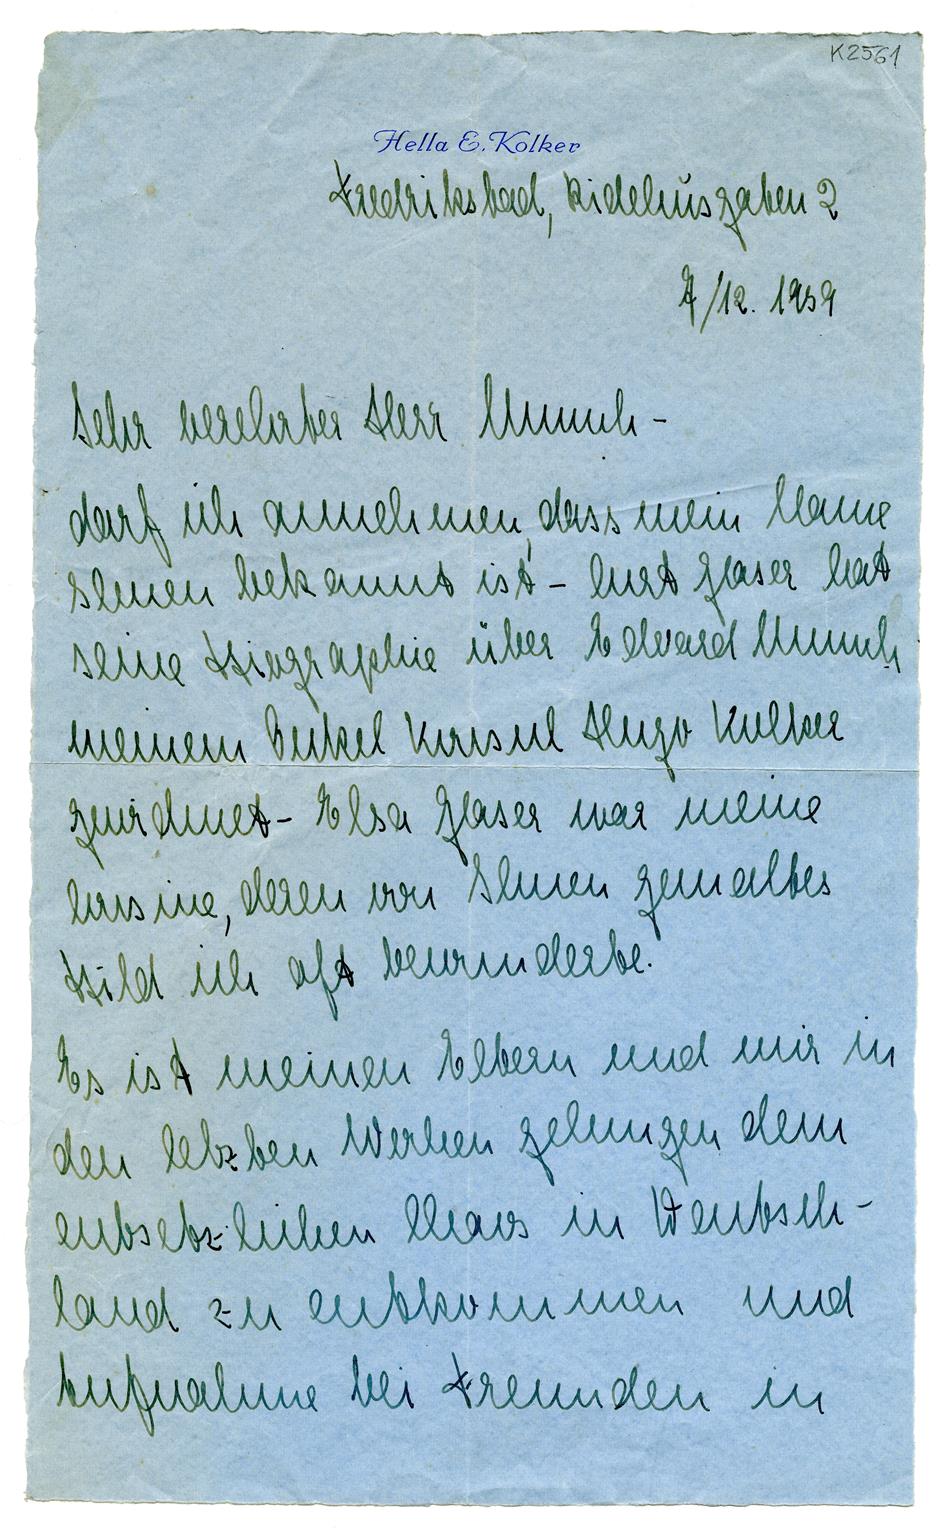 K2561
Hella E. Kolker
Fredriksbad,
7/12. 1939
Sehr verehrter Herr Munch –
darf ich annehmen, dass mein Name
Ihnen bekannt ist – Curt Glaser hat
seine Biographie über Edvard Munch
meinem Onkel Konsul Hugo Kolker
gewidmet – Elsa Glaser war meine
Cousine, deren von Ihnen gemaltes
Bild ich oft bewunderte.
Es ist meinen Eltern und mir in
den letzten Wochen gelungen dem
entsetzlichen Chaos in Deutsch-
land zu entkommen und
Aufnahme bei Freunden in